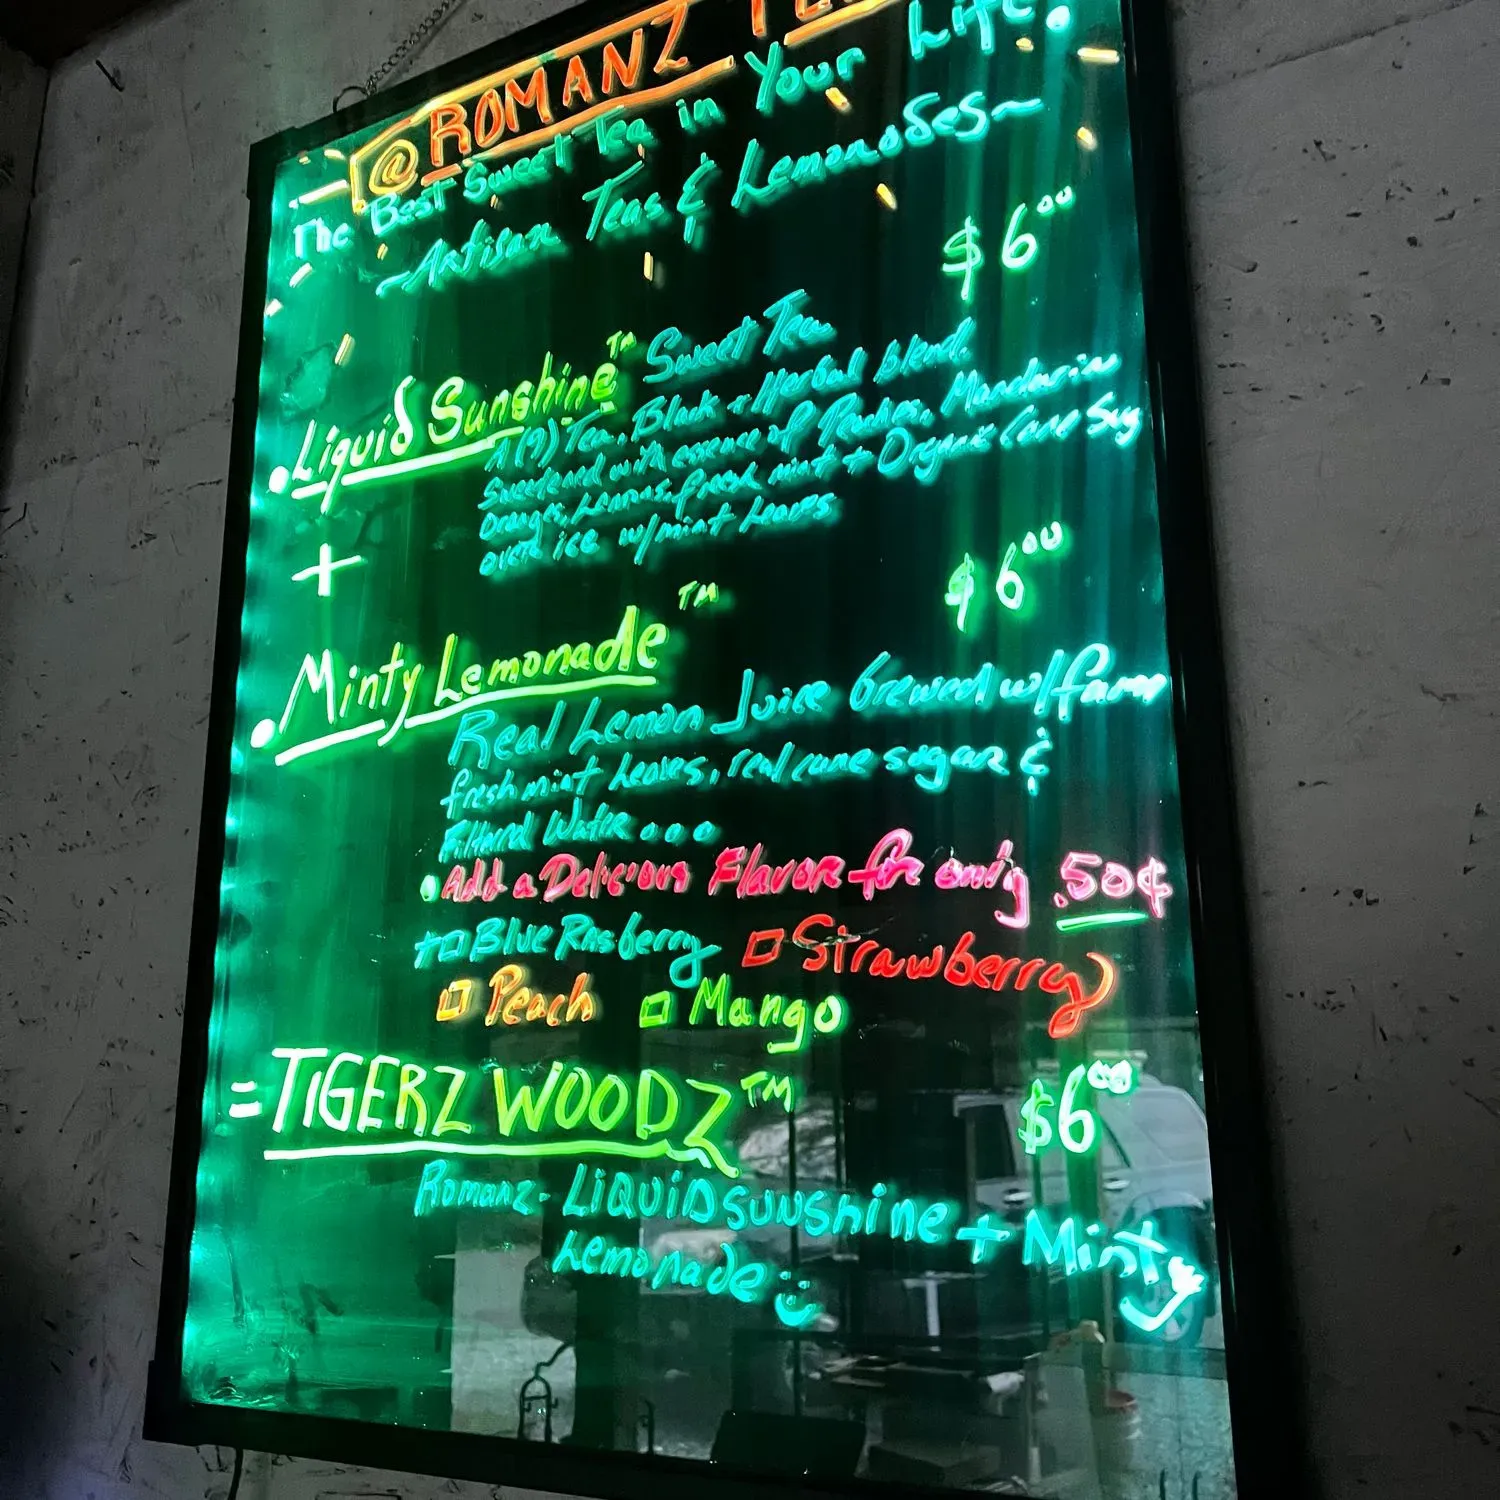 @ROMANZ
The Best Sweet Tea in Your Life.
~Artisan Teas & Lemonades~
$6.00
• Liquid Sunshine™ Sweet Tea
A (9) Tea, Black + Herbal blend.
Sweetened with essence of Mandarin
Oranges, Lemons, fresh mint + Organic Cane Sug
over ice w/mint Leaves
+
$6.00
• Minty Lemonade™
Real Lemon Juice brewed w/farm
fresh mint Leaves, real cane sugar &
Filtered Water...
• Add a Delicious Flavor for only .50¢
+ Blue Rasberry Strawberry
Peach Mango
= TIGERZ WOODZ™ $6.00
Romanz - LiQUiD SUNShine + Minty
Lemonade